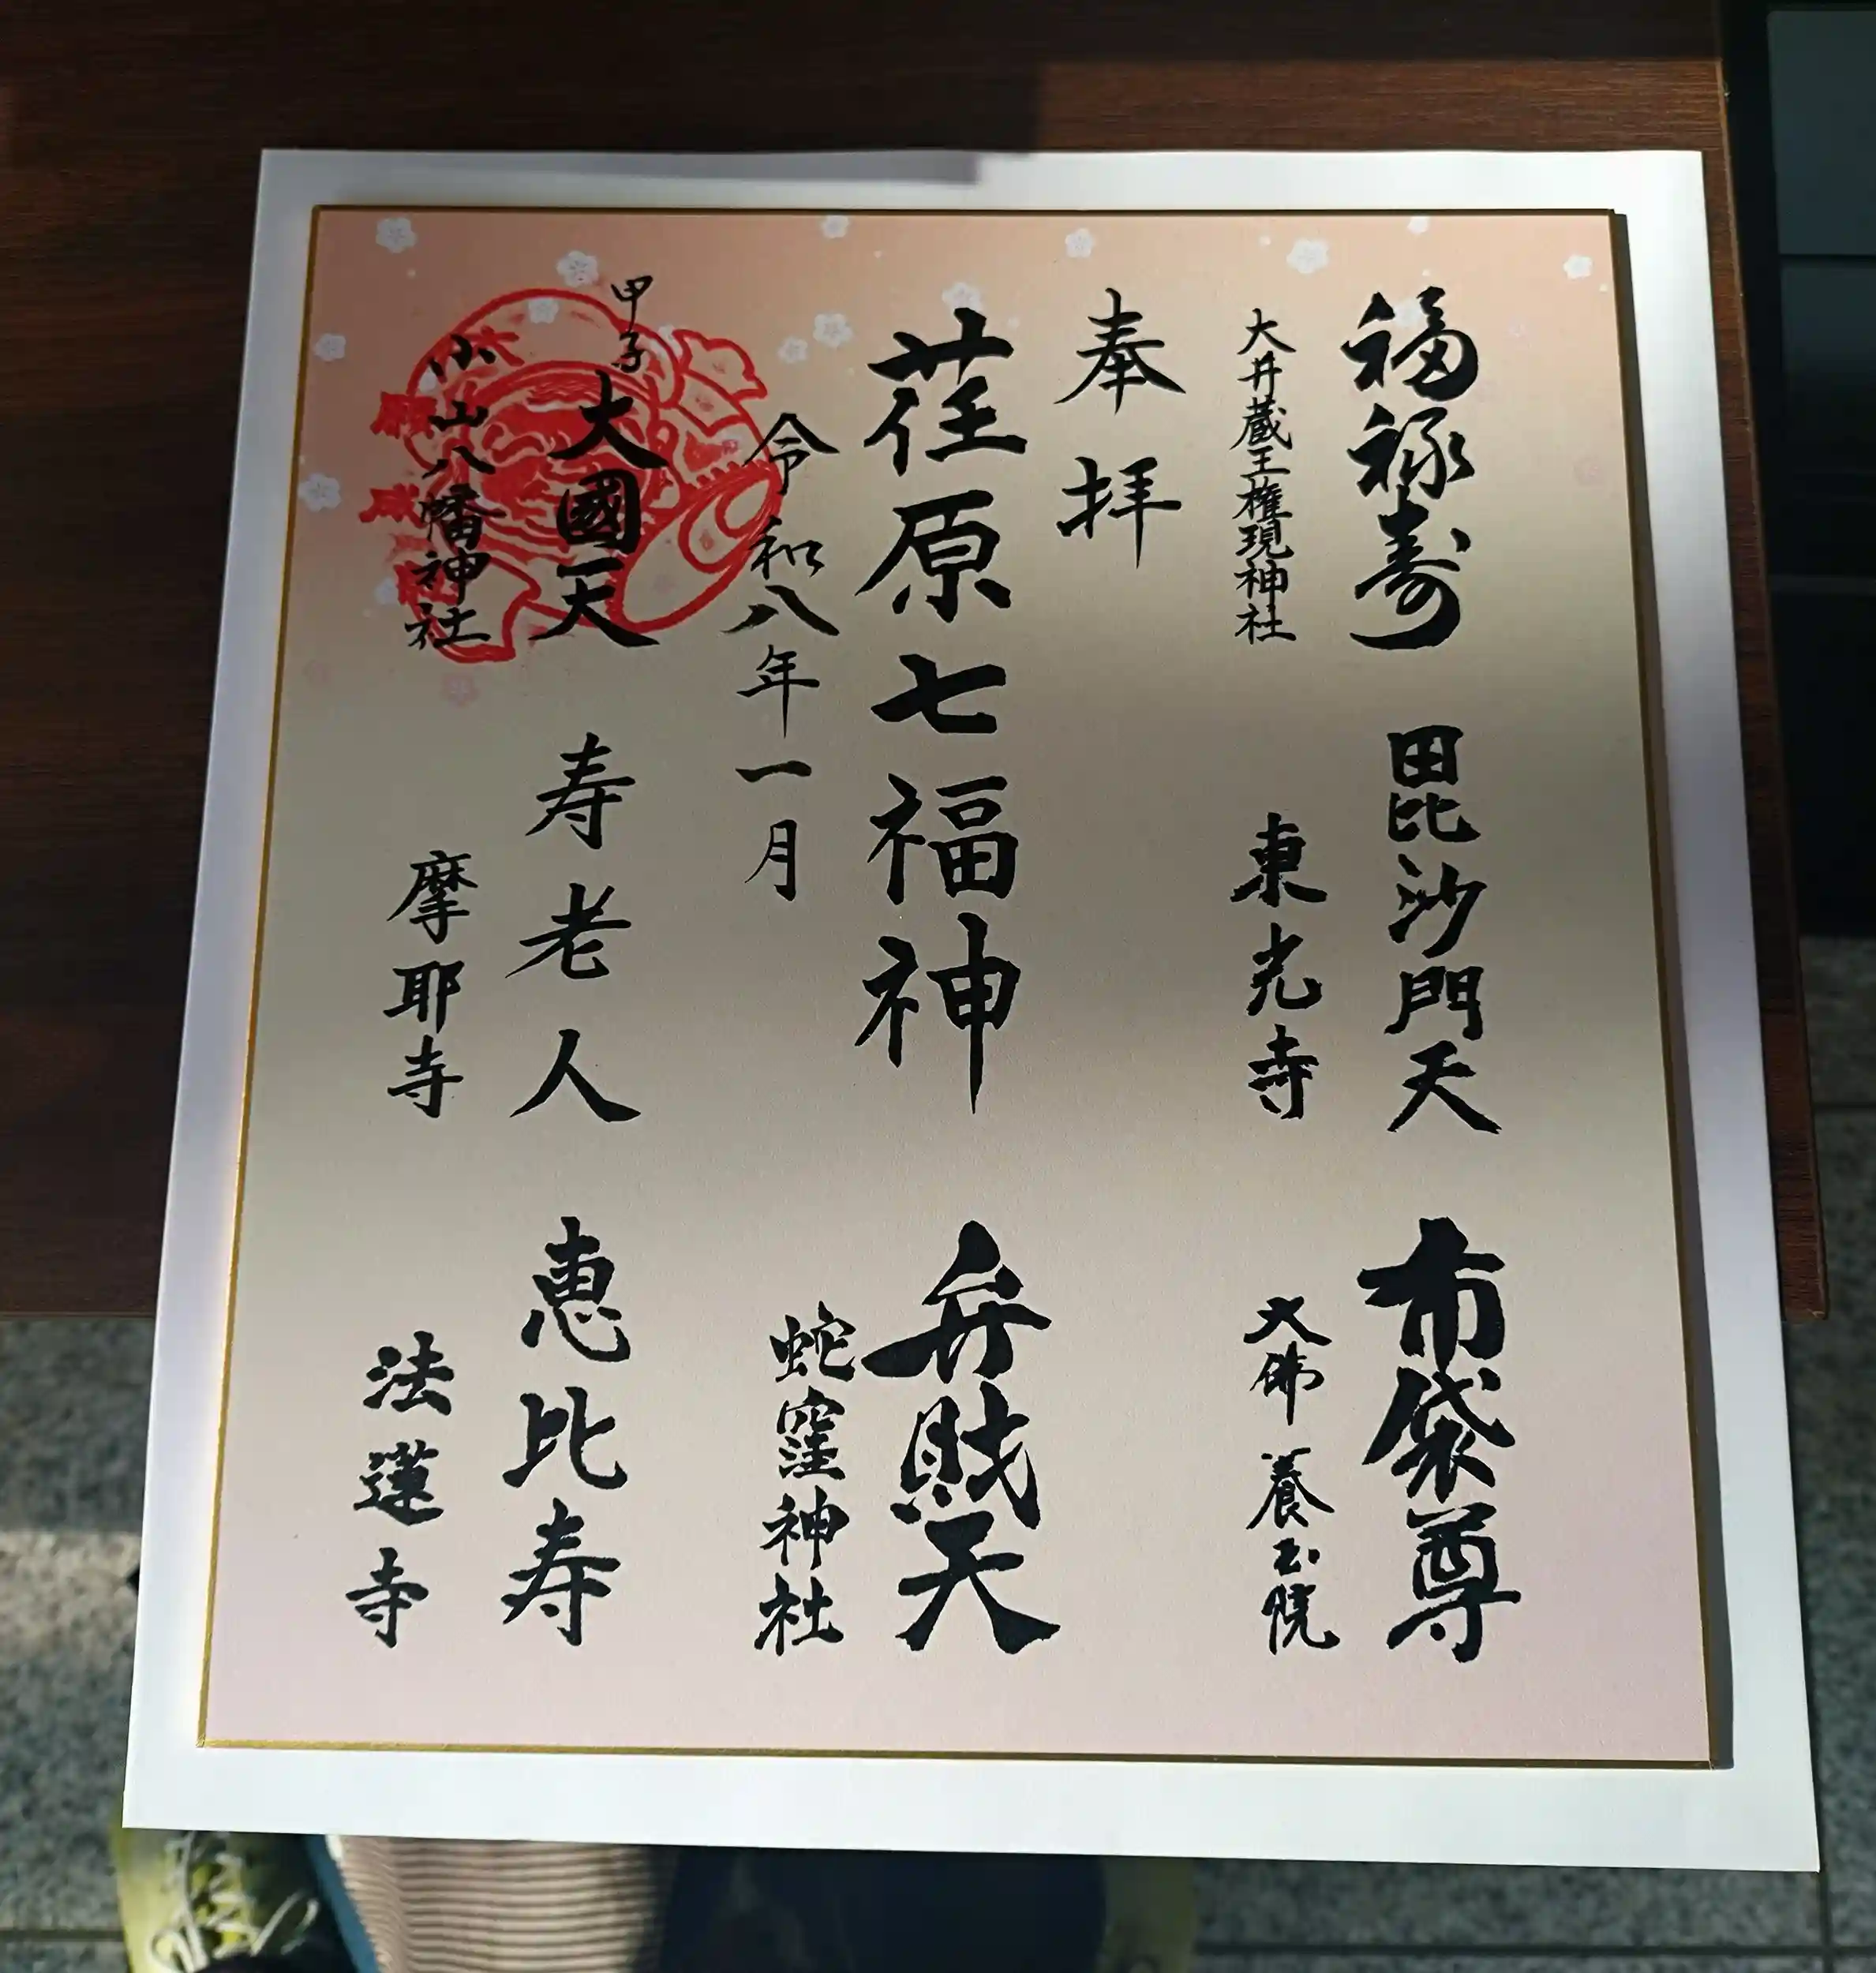 福禄寿
大井蔵王権現神社
毘沙門天
東光寺
布袋尊
大佛 養玉院
奉拝
荏原七福神
令和八年一月
弁財天
蛇窪神社
甲子 大國天
小山八幡神社
寿老人
摩耶寺
恵比寿
法蓮寺